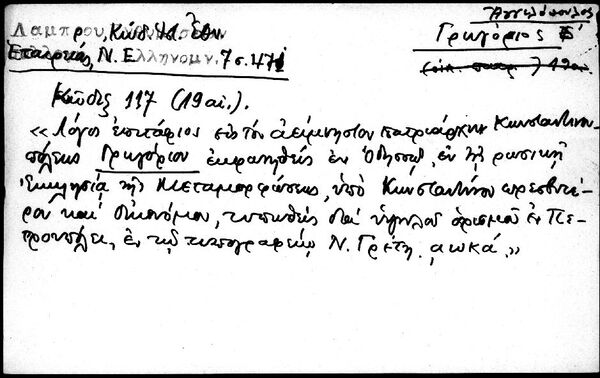 Λάμπρου, Κώδ. Ἱστ. Ἐθν.
Ἑταιρείας, Ν. Ἑλληνομν. 7 σ. 471
Ἀγγελόπουλος
Γρηγόριος Ε΄
(οἰκ. πατρ.) 19 αἰ.
Κῶδιξ 117 (19 αἰ.).
«Λόγος ἐπιτάφιος εἰς τὸν ἀείμνηστον πατριάρχην Κωνσταντινου-
πόλεως Γρηγόριον ἐκφωνηθεὶς ἐν Ὀδησσῷ, ἐν τῇ ρωσικῇ
Ἐκκλησίᾳ τῆς Μεταμορφώσεως, ὑπὸ Κωνσταντίνου πρεσβυτέ-
ρου καὶ οἰκονόμου, τυπωθεὶς δι' ὑψηλοῦ ὁρισμοῦ ἐν Πε-
τρουπόλει, ἐν τῷ τυπογραφείῳ Ν. Γρέτζ. ͵αωκά.»